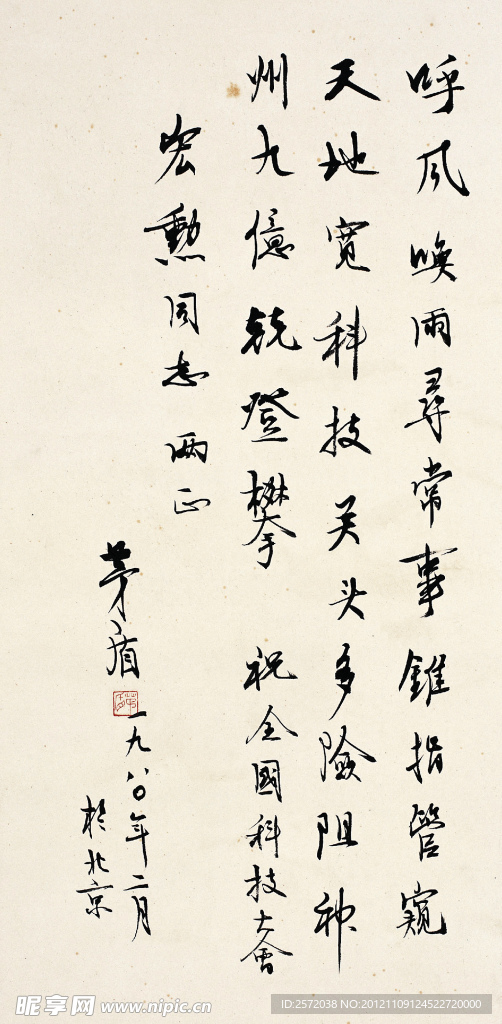 呼风唤雨尋常事錐指管窺
天地宽科技关头多險阻神
州九億兢登攀　祝全國科技大會
宏勳同志　两正
茅盾　一九八〇年二月
於北京
昵享网 www.nipic.cn
ID:2572038 NO:20121109124522720000